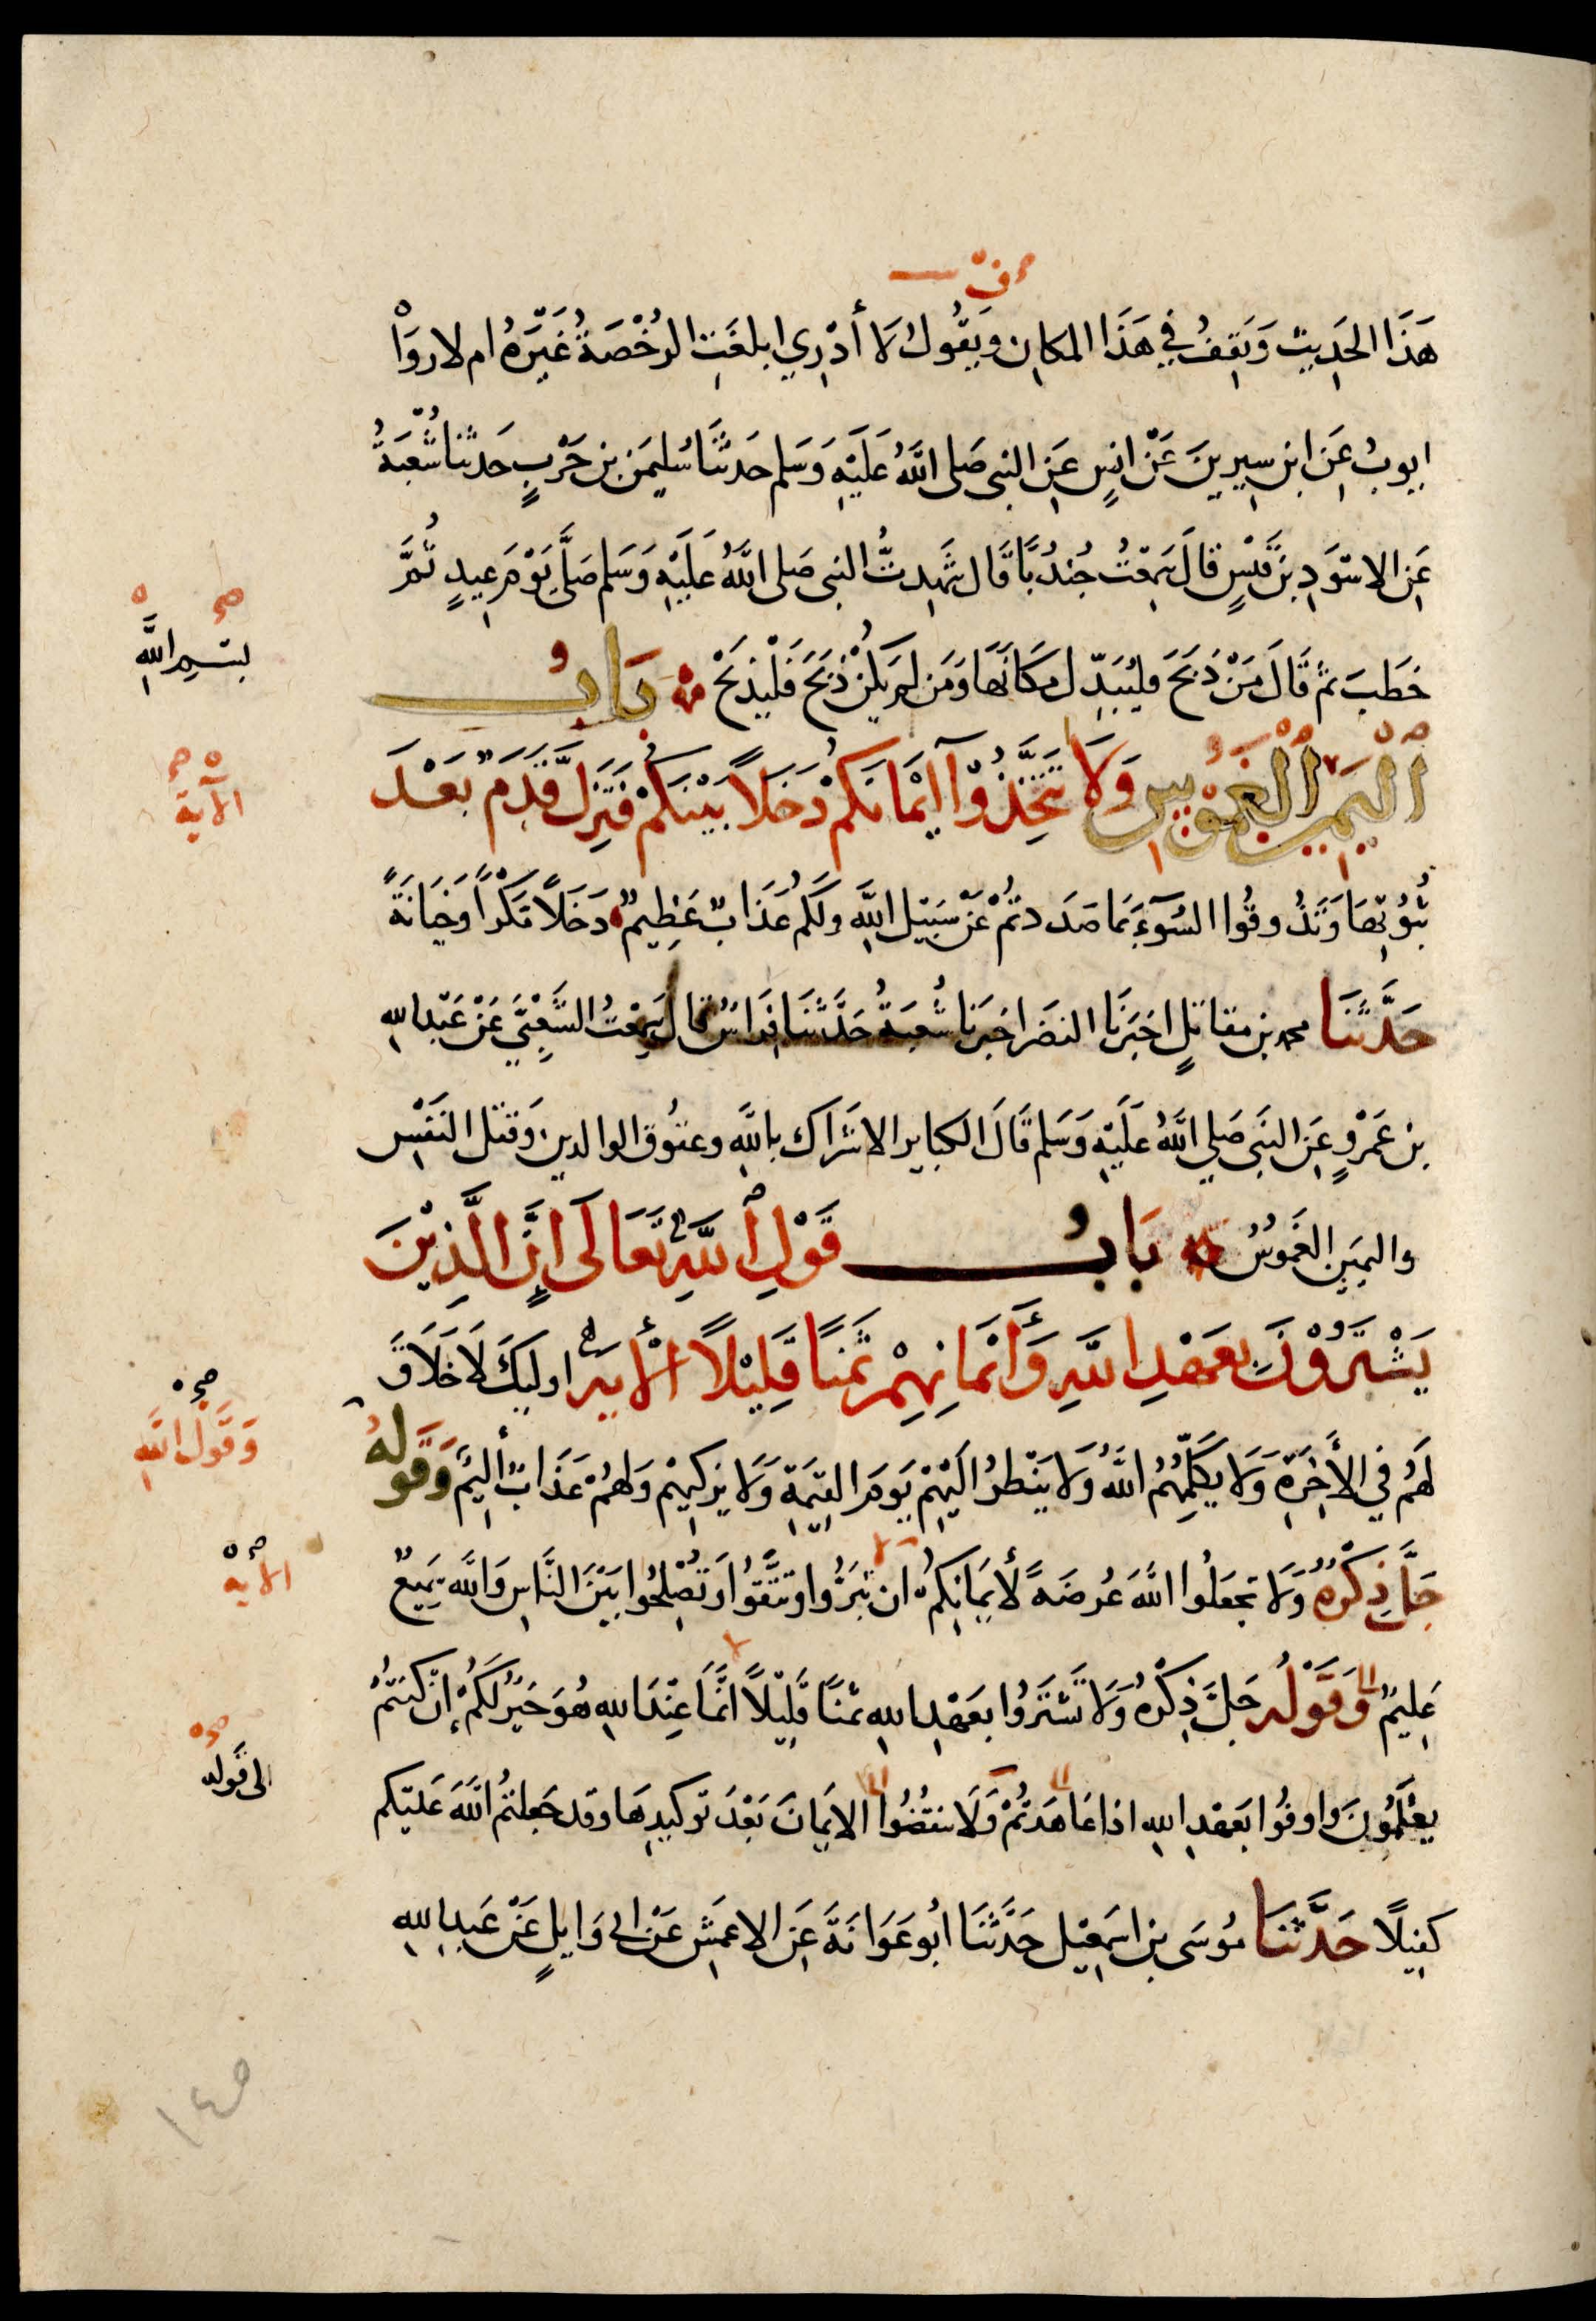 هَذَا الحَدِيث وَيَقِفُ في هَذَا المكانِ ويَقُولُ لَا أَدْرِي ابلغَتِ الرُّخْصَةُ غَيْرَهُ ام لا رَوَاهُ
ايوبُ عَنِ ابن سِيرِينَ عَنْ انسٍ عَنِ النبي صَلى اللَّهُ عَلَيْهِ وَسَلم حَدثَنَا سُلَيمَن بن حَرْبٍ حَدثنا شُعْبَةُ
عَنِ الاسْوَدِ بن قَيْسٍ قالَ سَمِعْتُ جُنْدُبًا قَالَ شَهِدتُّ النبي صَلى اللَّهُ عَلَيْهِ وَسَلم صَلَّى يَوْمَ عِيدٍ ثُمَّ
خطَبَ ثم قَالَ مَنْ ذَبَحَ فليُبَدِّل مَكَانَهَا وَمَن لم يَكُنْ ذَبَحَ فَلْيَذبَحْ بَابُ
بسم الله
اليَمِينِ الغَمُوسِ وَلَا تَتَّخِذُوْآ ايْمَانَكُمْ دَخَلاً بَيْنَكُمْ فَتَزِلَّ قَدَمٌ بَعْدَ
الآية
ثُبُوتِهَا وَتَذُوقُوا السُّوءَ بمَا صَدَدتُمْ عَنْ سَبِيْلِ اللَّهِ ولَكُم عَذَابٌ عَظِيمٌ دَخَلاً مَكْرًا وَخِيَانَةً
حَدَّثَنَا محمد بن مقاتلٍ اخبَرَنَا النضر اخبَرَنا شُعْبَةُ حَدَّثَنَا فِرَاسٌ قال سَمِعْتُ الشَّعْبِيَّ عَنْ عَبْدِ اللهِ
بن عَمْرٍو عَنِ النَبِي صَلي اللَّهُ عَلَيْهِ وَسَلم قَالَ الكباير الاشراك باللَّهِ وعقُوق الوالدين وَقتل النَفْسِ
واليمِينِ الغَمُوسُ بَابُ قَوْلِ اللَّهِ تَعَالَى انَّ الَّذِيْنَ
يَشْتَرُوْنَ بِعَهْدِ اللَّهِ وَأَيْمَانِهِمْ ثَمَنًا قَلِيْلاً الأَيَة اوليك لَا خَلَاقَ
لَهُم في الأَخِرَةِ وَلَا يكَلِّمُهُم اللَّهُ وَلَا يَنْظرُ الَيْهِم يَومَ القيمَةِ وَلَا يزكيهِمْ وَلَهُمْ عَذَابٌ أليمٌ وَقَولهُ
وَقَولُ اللَّهِ
جَلَّ ذِكْرُهُ وَلَا تجعَلُوا اللَّهَ عُرضَةً لأَيمَانِكُم ان تَبَرُّوا وتَتَّقُوا وَتُصْلِحُوا بَيْنَ النَّاسِ وَاللَّه سَمِيعٌ
الأية
عَلِيمٌ وَقَوْلُه جَلَّ ذِكْرُهُ وَلَا تَشْتَرُوا بعَهْدِ اللهِ ثمَنًا قَلِيْلاً انَّمَا عِنْدَ اللهِ هُوَ خَيْرٌ لَكُمْ إن كنتُمْ
يعْلَمُونَ واوفُوا بعَهْدِ اللهِ اذا عَاهَدتُّمْ وَلَا تنقُضُوا الايمَانَ بَعْدَ توكيدِهَا وقد جَعلتُمُ اللَّهَ عَلَيْكم
الى قَولِه
كفِيلًا حَدَّثَنَا مُوسَى بن اسمَعِيْل حَدَّثَنَا ابُو عَوَانَةَ عَنِ الاعمَشِ عَنْ ابي وَايلٍ عَنْ عَبدِ اللهِ